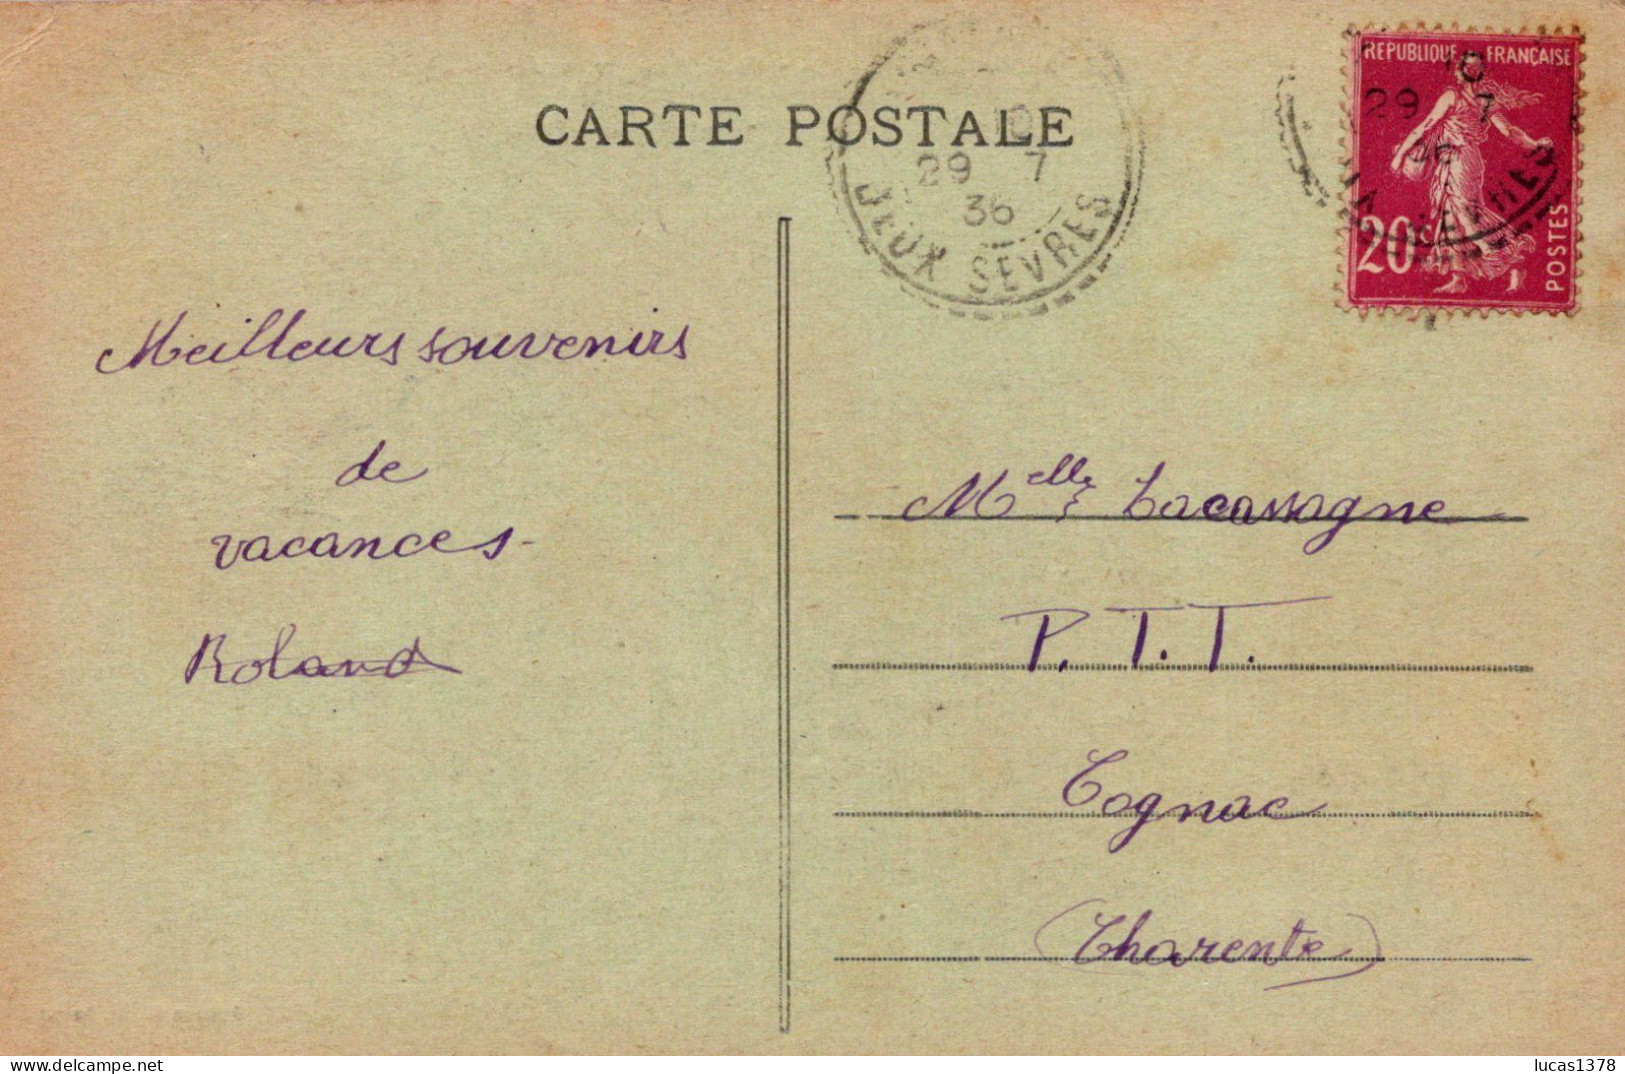 CARTE POSTALE
10
29 7
36
DEUX SEVRES
REPUBLIQUE FRANÇAISE
10
29 7
36
20c
POSTES
Meilleurs souvenirs
de
vacances
Roland
Melle Lacassagne
P.T.T.
Cognac
(Charente)
www.delcampe.net
lucas1378